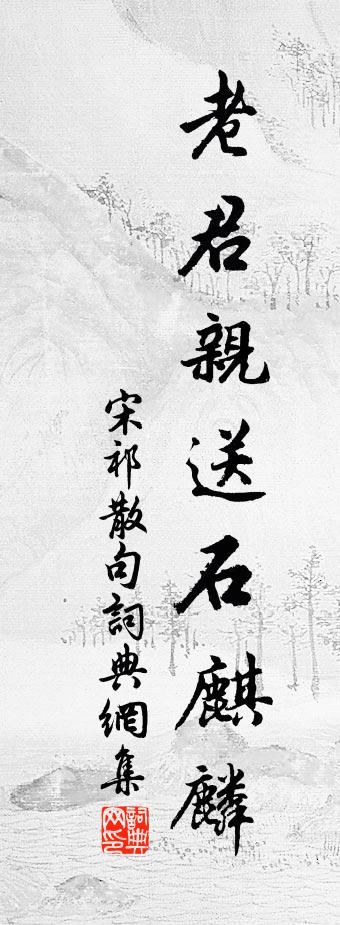 老君親送石麒麟
宋祁散句詞典網集
詞典网印